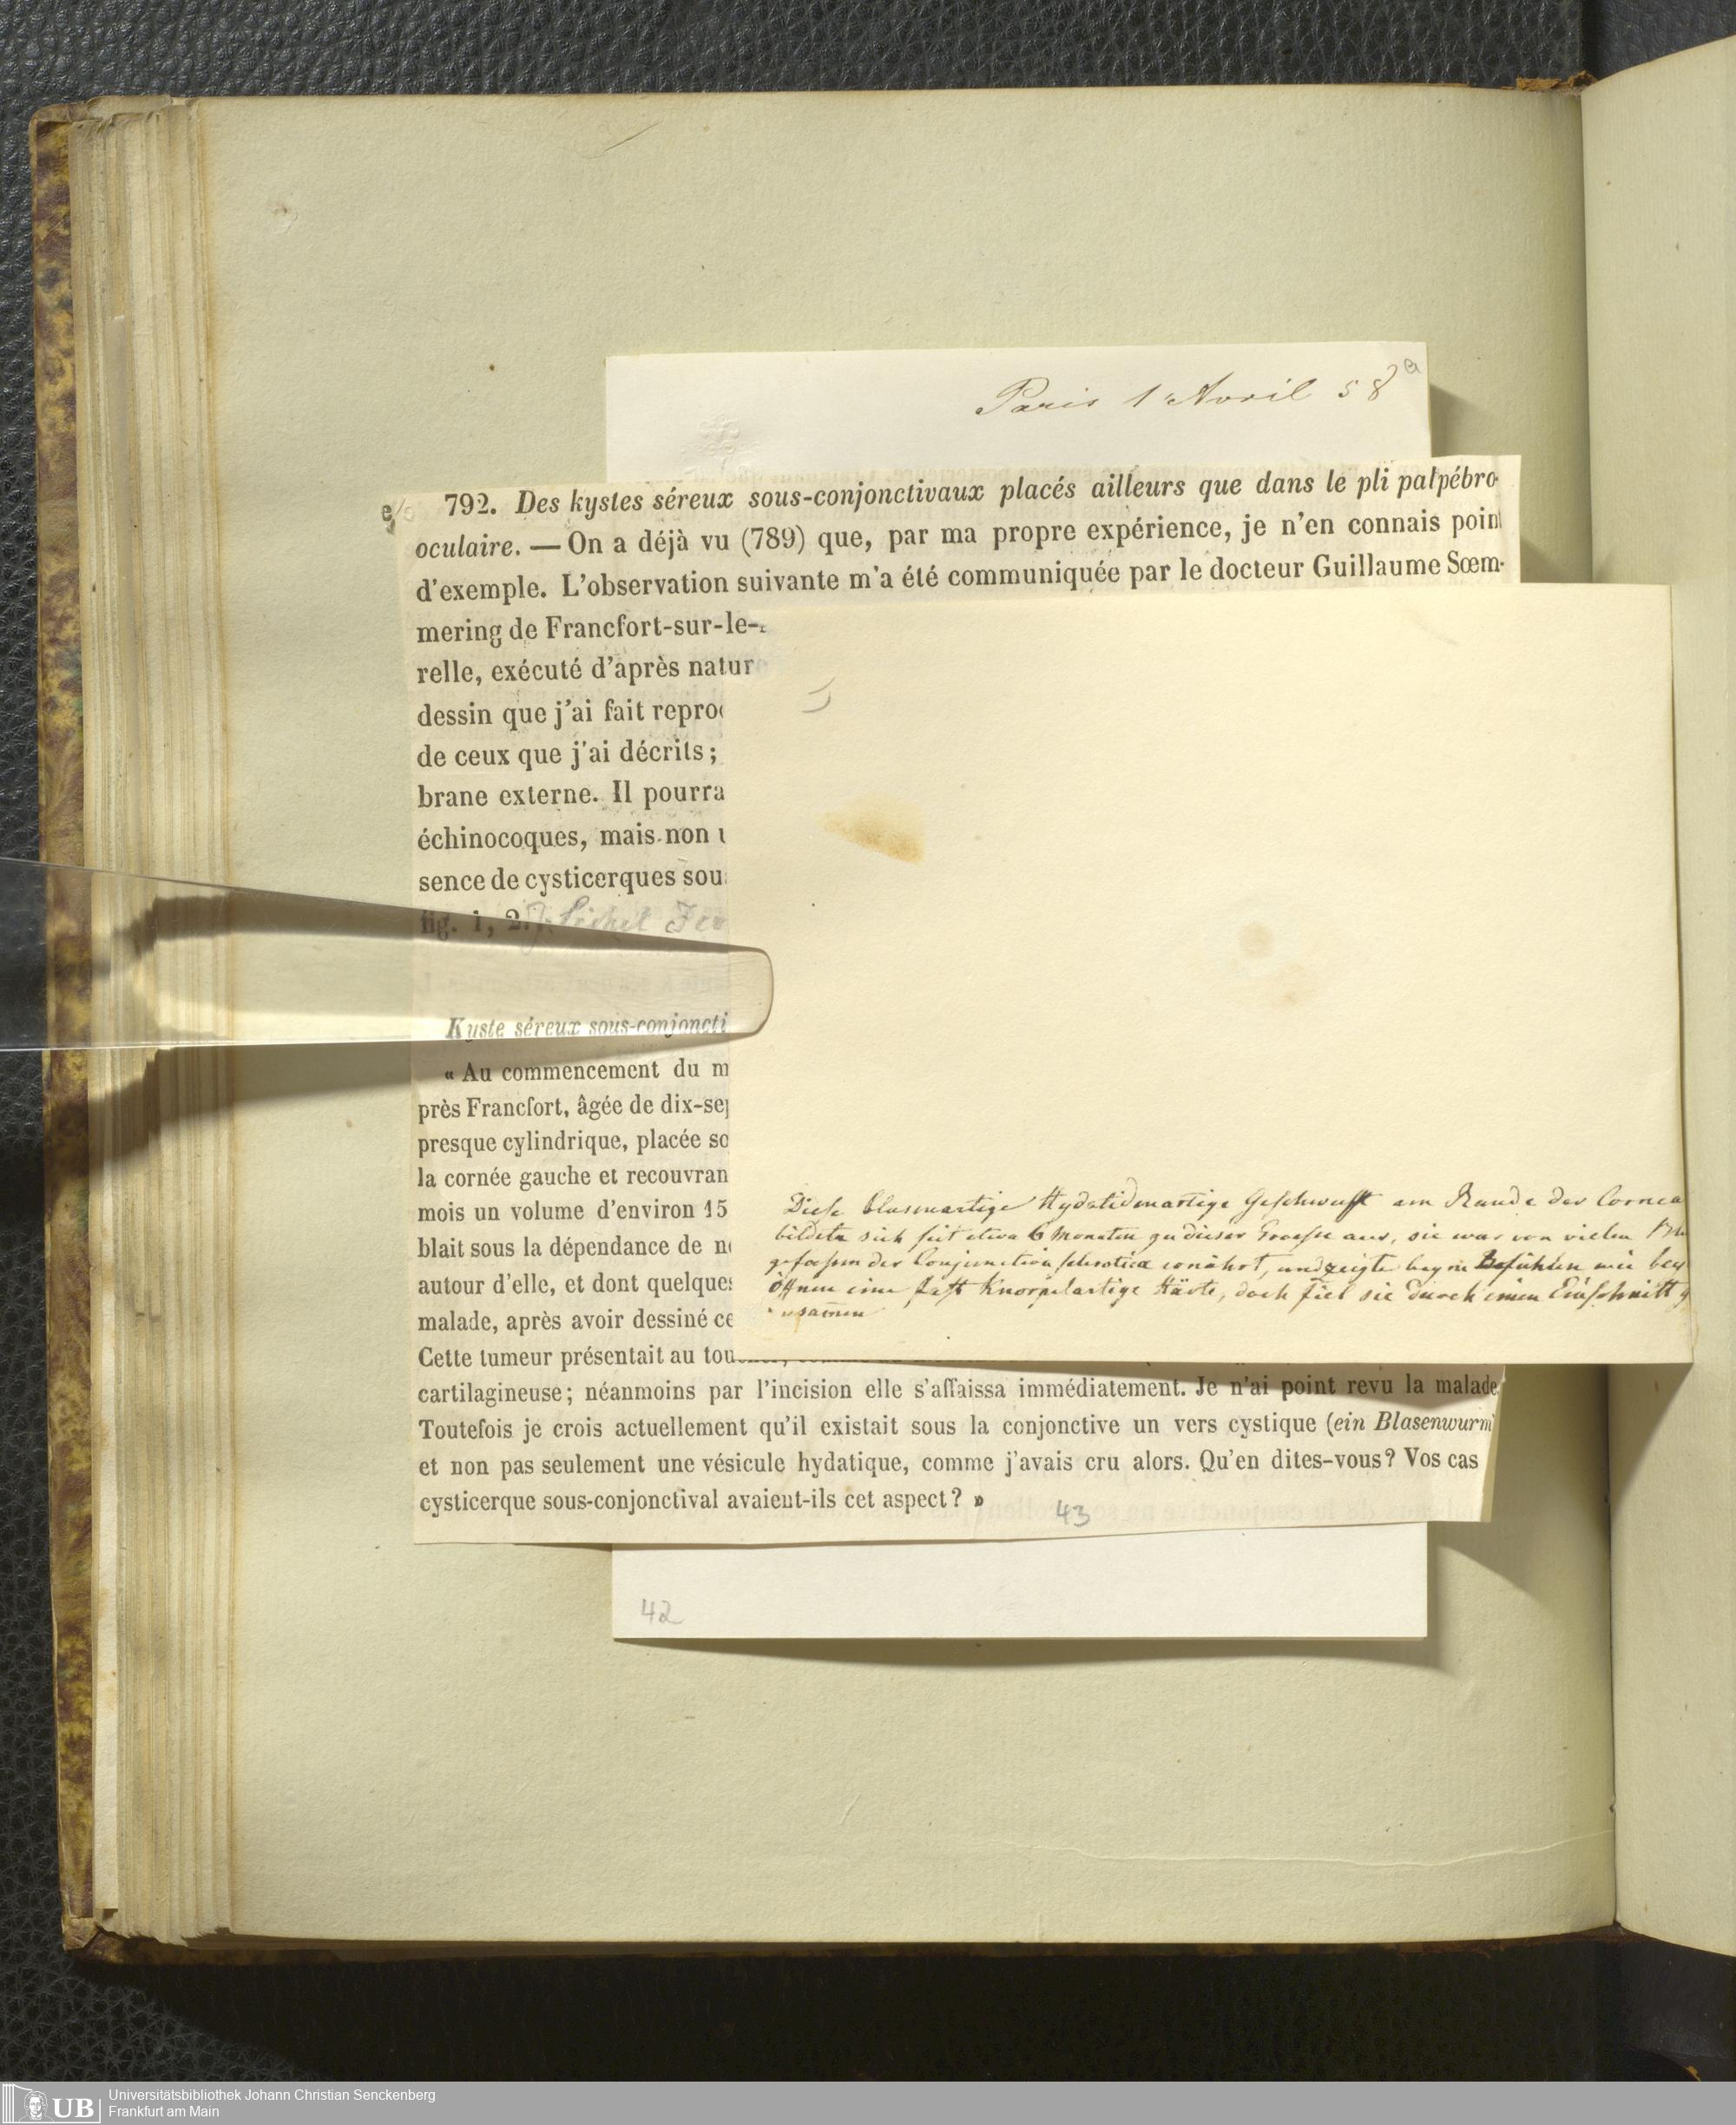 Paris 1 Avril 58
a
792. Des kystes séreux sous-conjonctivaux placés ailleurs que dans le pli palpébro-
oculaire. — On a déjà vu (789) que, par ma propre expérience, je n'en connais point
d'exemple. L'observation suivante m'a été communiquée par le docteur Guillaume Sœm-
mering de Francfort-sur-le-
relle, exécuté d'après natur
dessin que j'ai fait repro
de ceux que j'ai décrits;
brane externe. Il pourra
échinocoques, mais non
sence de cysticerques sou
fig. 1, 2.
Kyste séreux sous-conjoncti
« Au commencement du m
près Francfort, âgée de dix-sep
presque cylindrique, placée so
la cornée gauche et recouvran
mois un volume d'environ 15
blait sous la dépendance de n
autour d'elle, et dont quelques
malade, après avoir dessiné ce
Cette tumeur présentait au tou
cartilagineuse; néanmoins par l'incision elle s'affaissa immédiatement. Je n'ai point revu la malade
Toutefois je crois actuellement qu'il existait sous la conjonctive un vers cystique (ein Blasenwurm
et non pas seulement une vésicule hydatique, comme j'avais cru alors. Qu'en dites-vous? Vos cas
cysticerque sous-conjonctival avaient-ils cet aspect? »
43
Diese blasenartige Hydatidenartige Geschwulst am Rande der Cornea
bildete sich seit etwa 6 Monaten zu dieser Groesse aus, sie war von vielen
gefaessen der Conjunctiva sclerotica ernährt, und zeigte beym Befühlen wie bey
Öffnen eine fast Knorpelartige Härte, doch fiel sie durch einen Einschnitt
usamen
42
UB
Universitätsbibliothek Johann Christian Senckenberg
Frankfurt am Main